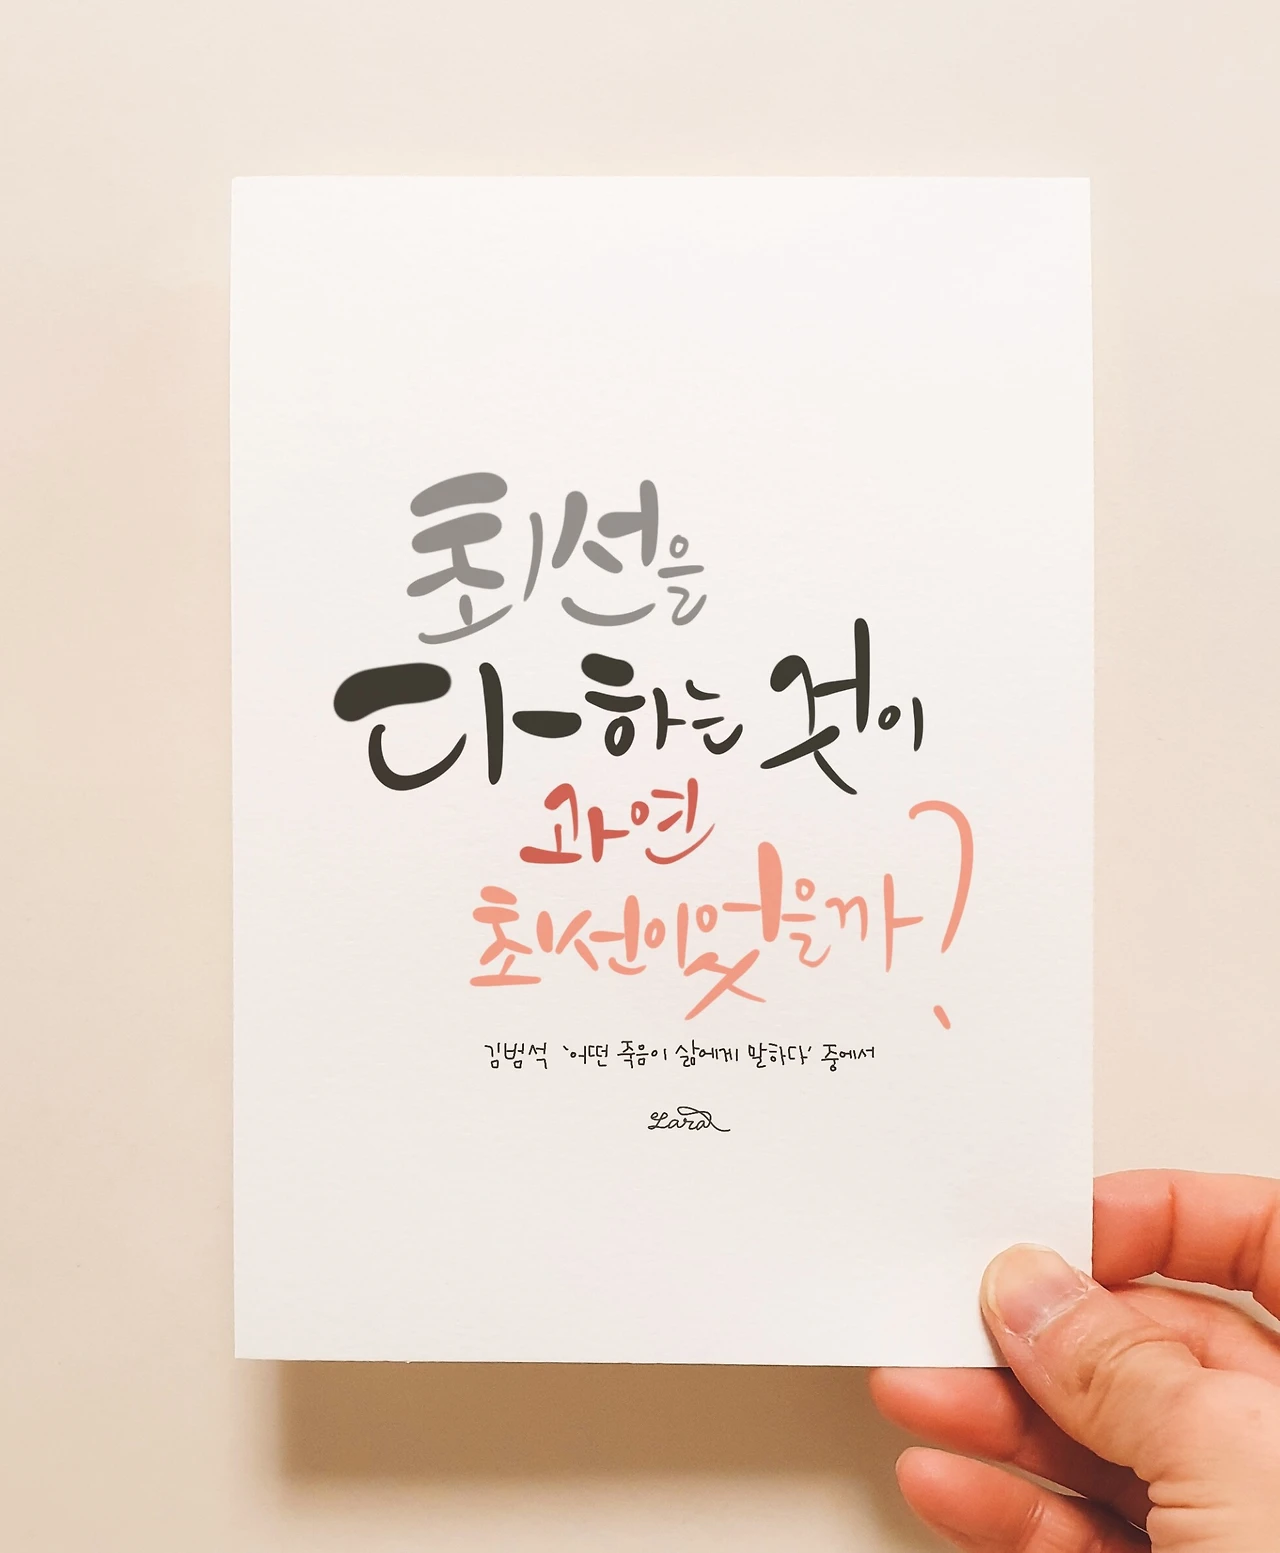 최선을
다하는 것이
과연
최선이었을까?
김범석 '어떤 죽음이 삶에게 말하다' 중에서
Lara